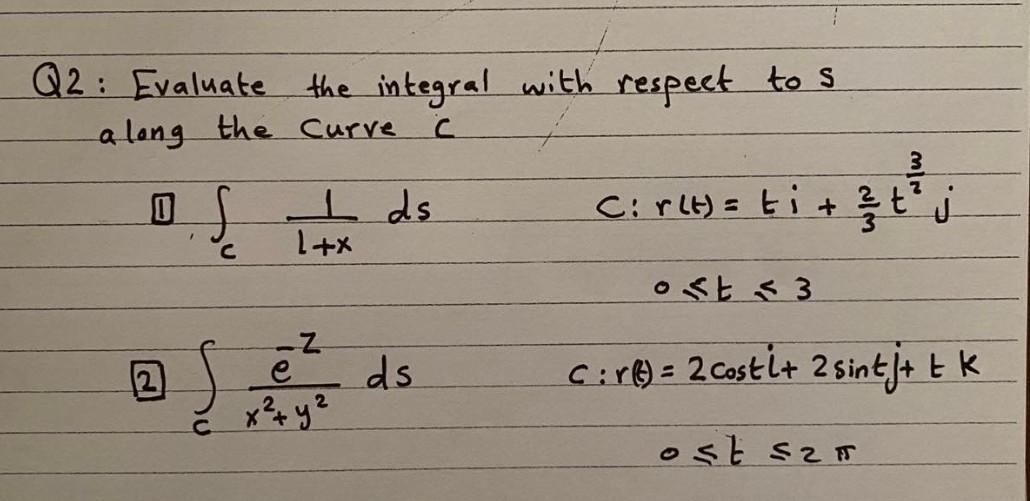 Q2: Evaluate the integral with respect to s
along the Curve C
1 ∫_C 1/(1+x) ds C: r(t) = t i + 2/3 t^(3/2) j
0 ≤ t ≤ 3
2 ∫_C e^(-z)/(x²+y²) ds C: r(t) = 2 cost i + 2 sint j + t k
0 ≤ t ≤ 2π